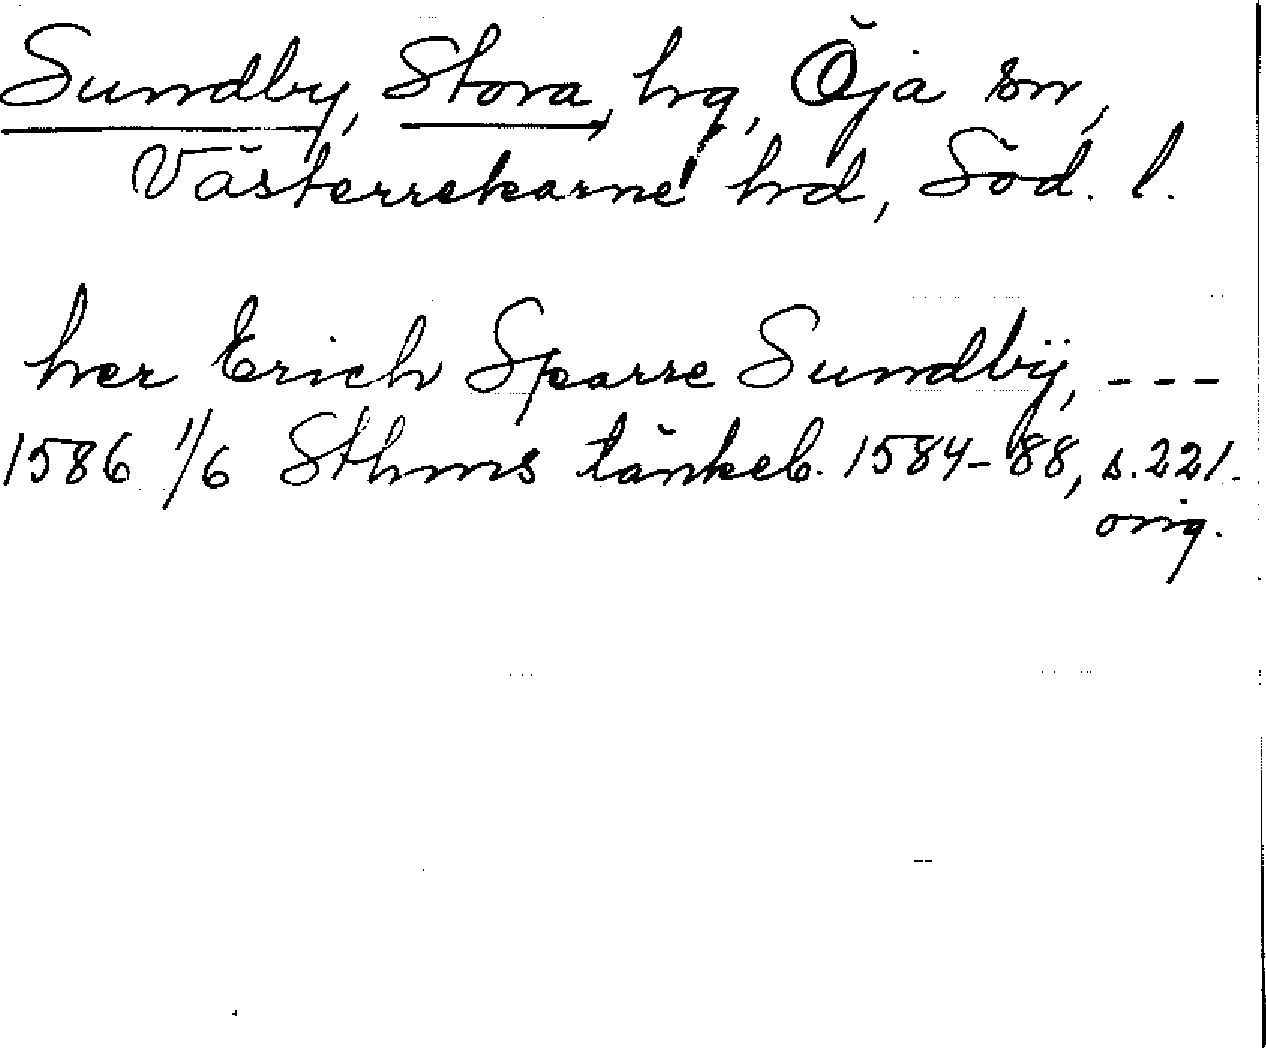 Sundby, Stora, hg, Öja sn,
Västerrekarne hd, Söd. l.
her Erich Sparre Sundbÿ, ---
1586 1/6 Sthms tänkeb. 1584-88, s. 221.
orig.